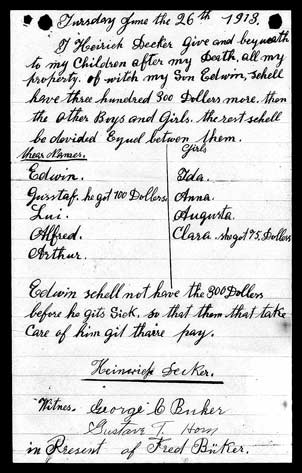 Tursday June the 26th 1913.
I Heirich Decker give and bequeath
to my Children after my Death, all my
property. of witch my Son Edwin, schell
have three hundred 300 Dollers more. then
the other Boys and Girls. the rest schell
be devided Equel betwen them.
thear Names. Girls
Edwin. Ida.
Gusstaf. he got 100 Dollers. Anna.
Lui. Augusta.
Alfred. Clara she got 75. Dollers
Arthur.
Edwin schell not have the 300 Dollers
before he gits Sick. so that them that take
Care of him git thaire pay.
Heinrich Decker.
Witnes. George C Buker
Gustave T. Horn
in Present of Fred Büker.